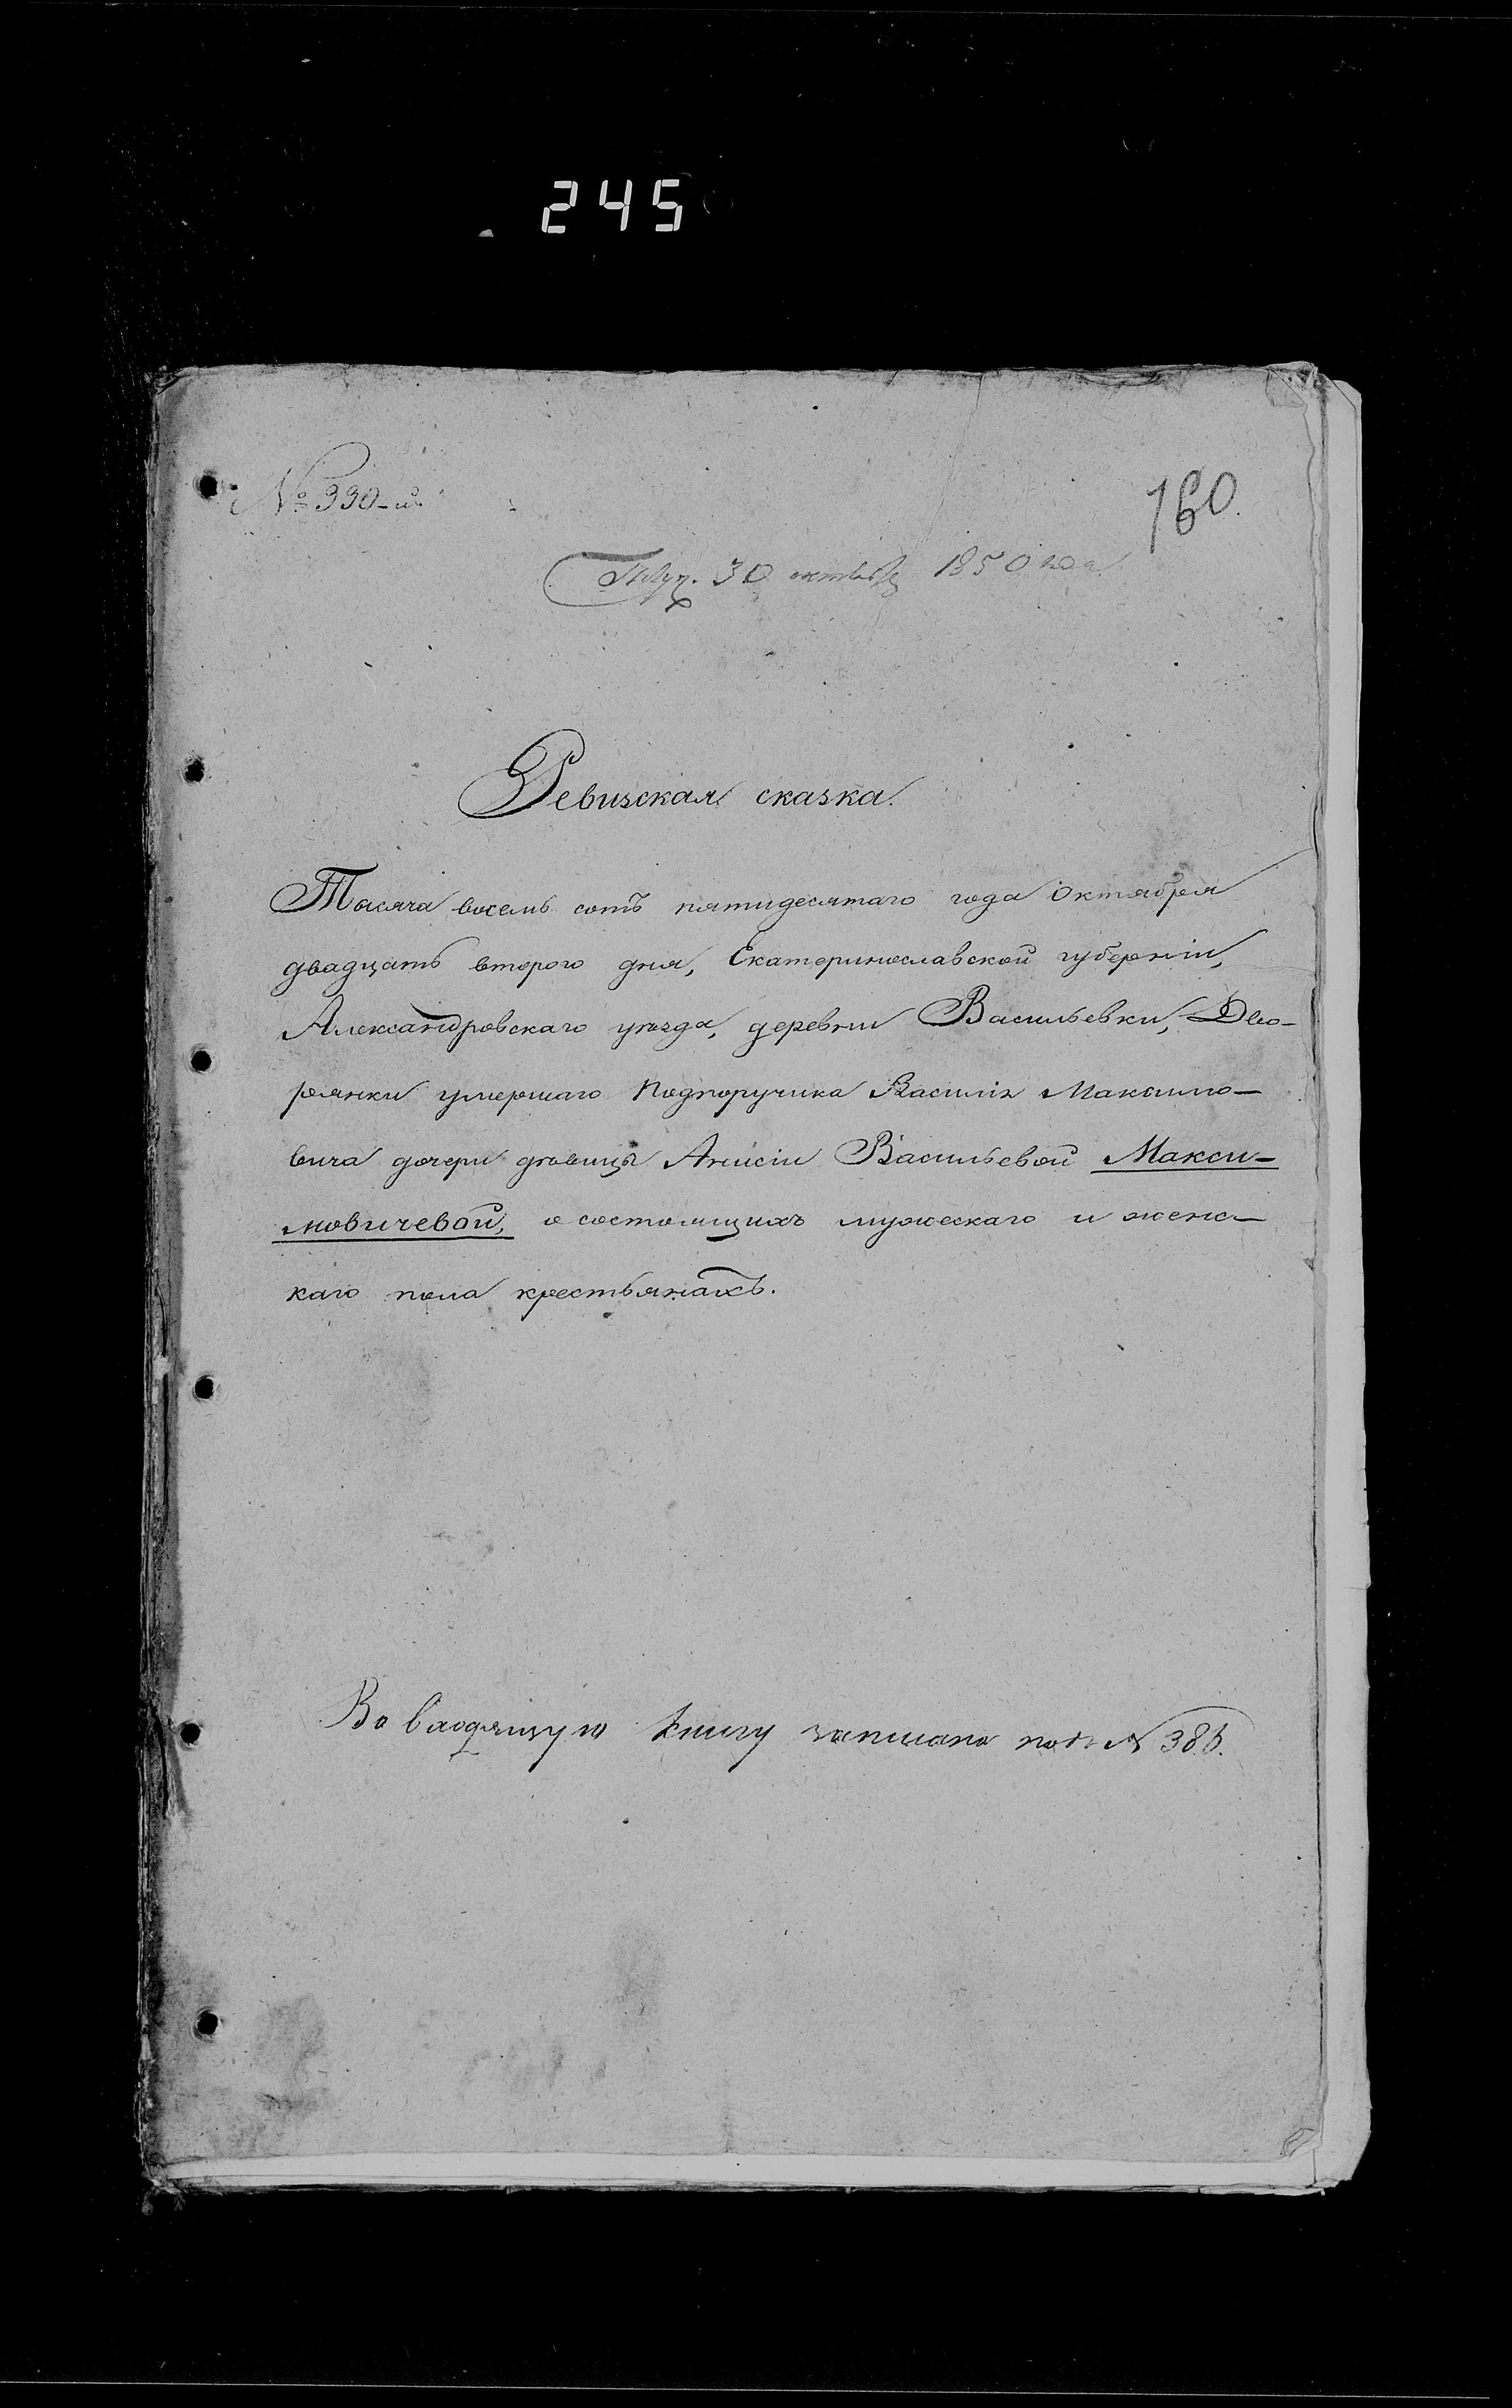 245
№ 330-й
160.
Получ. 30 октября 1850 года.
Ревизская сказка.
Тысяча восемь сотъ пятидесятаго года Октября
двадцать втораго дня, Екатеринославской губерніи,
Александровскаго уѣзда, деревни Васильевки, Дво-
рянки умершаго Подпоручика Василія Максимо-
вича дочери дѣвицы Анисіи Васильевой Макси-
мовичевой, о состоящихъ мужескаго и женс-
каго пола крестьянахъ.
Во входящую книгу записана подъ №